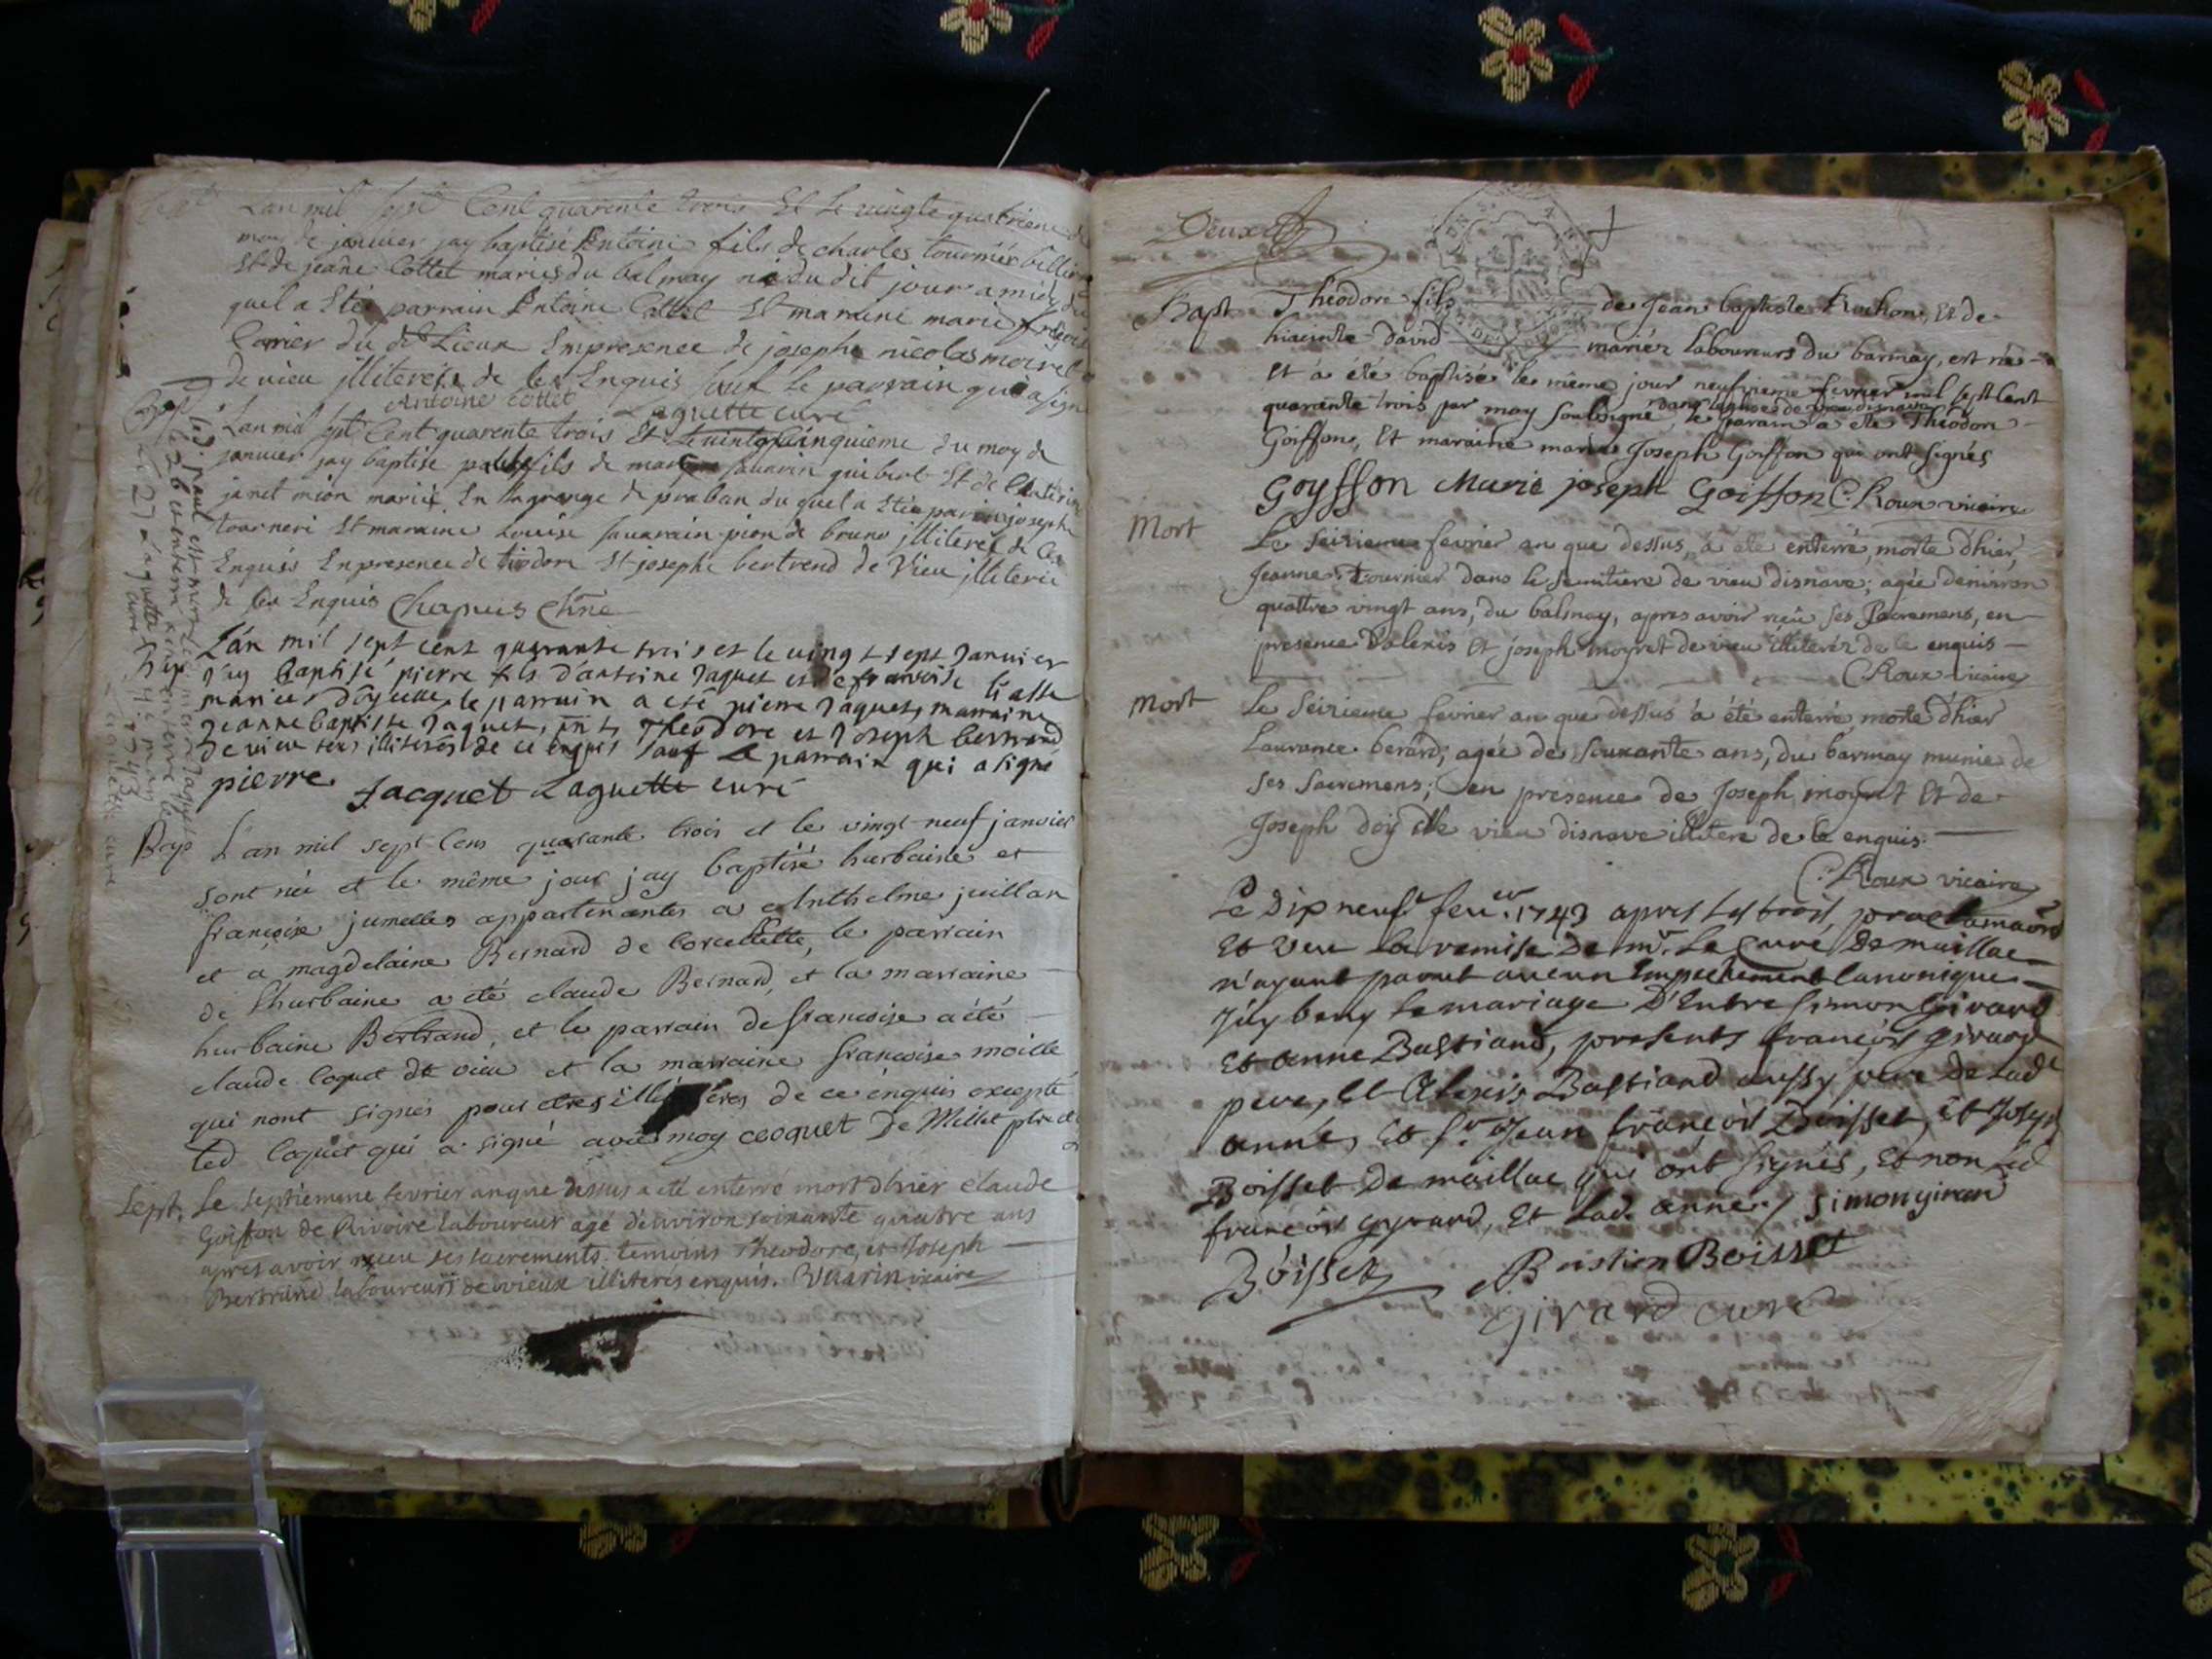 Lan mil sept Cent quarente trois Et Le vingte quatrieme du
mois de janvier jay baptisé Entoine fils de charles tournier billion
Et de jeane Cottet maries du balmay né du dit jour a midy du
quel a Etée parrain Entoine Cottet Et maraine marie
Carrier du dt Lieux Empresence de josephe nicolas moiret
de vieu jlliterés de ces Enquis sauf Le parrain qui a signé
Antoine cottet Laguette curé
Bapt Lan mil sept Cent quarente trois Et Le vintgCinquieme du moy de
janvier jay baptise fils de savarin guibert Et de
janet mion mariés En lagrange de praban du quel a Etée parain joseph
tourneri Et maraine Louise savarain pion de brune jlliterés de Ces
Enquis Enpresence de tiodore Et josephe bertrend de Vieu jlliteré
de ces Enquis Chapuis
Bap L'an mil sept cent quarante trois et le vingt sept Janvier
J'ay Baptisé pierre fils d'antoine Jaquet et de francoise liasse
mariés d'oyselle, le parrain a eté pierre Jaquet, marraine
Jeanne baptiste Jaquet, Theodore et Joseph bertrand
de vieu tous illiterés de ce enquis sauf Le parrain qui a signé
pierre Jacquet Laguette curé
Bap L'an mil sept Cens quarante trois et le vingt-neuf janvier
sont née et le même jour jay baptisé hurbaine et
francoise jumelles appartenantes a Anthelme juillan
et a magdelaine Bernard de Corcelette, le parrain
de hurbaine a eté claude Bernard, et la marraine
hurbaine Bertrand, et le parrain de francoise a été
claude Coquet de vieu et la marraine francoise moille
qui nont signés pour etre illiteres de ce enquis excepté
led Coquet qui a signé avec moy coquet De Millet
Sept. Le septiemme fevrier an que dessus a eté enterré mort d'hier claude
Goiffon de Rivoire laboureur agé d'environ soixante quatre ans
apres avoir reçu ses sacrements. temoins Theodore, et Joseph
Bertrand laboureurs de vieux illiterés enquis. Vuarin vicaire
Deux
Bapt Theodore fils de Jean baptiste Rochon, Et de
hiacinte david mariéz Laboureurs du barmay, est né
Et a été baptisé le même jour neufvieme fevrier mil sept cent
quarante trois par moy soussigné dans l'eglise de vieu disnave, le parain a ete Theodore
Goiffon, Et maraine marie Joseph Goiffon qui ont signés
Goyffon Marie joseph Goiffon C. Roux vicaire
Mort Le seizieme fevrier an que dessus, a ete enterré, morte d'hier,
Jeanne Tournier dans le semitiere de vieu disnave; agée denviron
quattre vingt ans, du balmay, apres avoir reçu ses Sacremens, en
presence D'alexis Et joseph moyret de vieu illiteréz de ce enquis
C Roux vicaire
Mort Le seizieme fevrier an que dessus a été enterré morte d'hier
Laurance berard; agée de soixante ans, du barmay munie de
ses sacremens; en presence de Joseph moyret Et de
Joseph doy de vieu disnave illitere de ce enquis.
C. Roux vicaire
Le Dix neuf feuer. 1743 apres Les trois proclamaons
Et veu la remise de mr. Le Curé de maillac
n'ayant parut aucun Empechement Canonique
J'ay beny Le mariage D'Entre simon Girard
Et anne Bastiand, presents francois girard
pere, Et Alexis Bastiand aussy pere de Lade
anne, Et sr. Jean françois Boisset, Et Joseph
Boisset de maillac qui ont signés, Et non led
francois gyrard, Et Lad. anne / Simon girard
Boisset Bastien Boisset
Girard curé